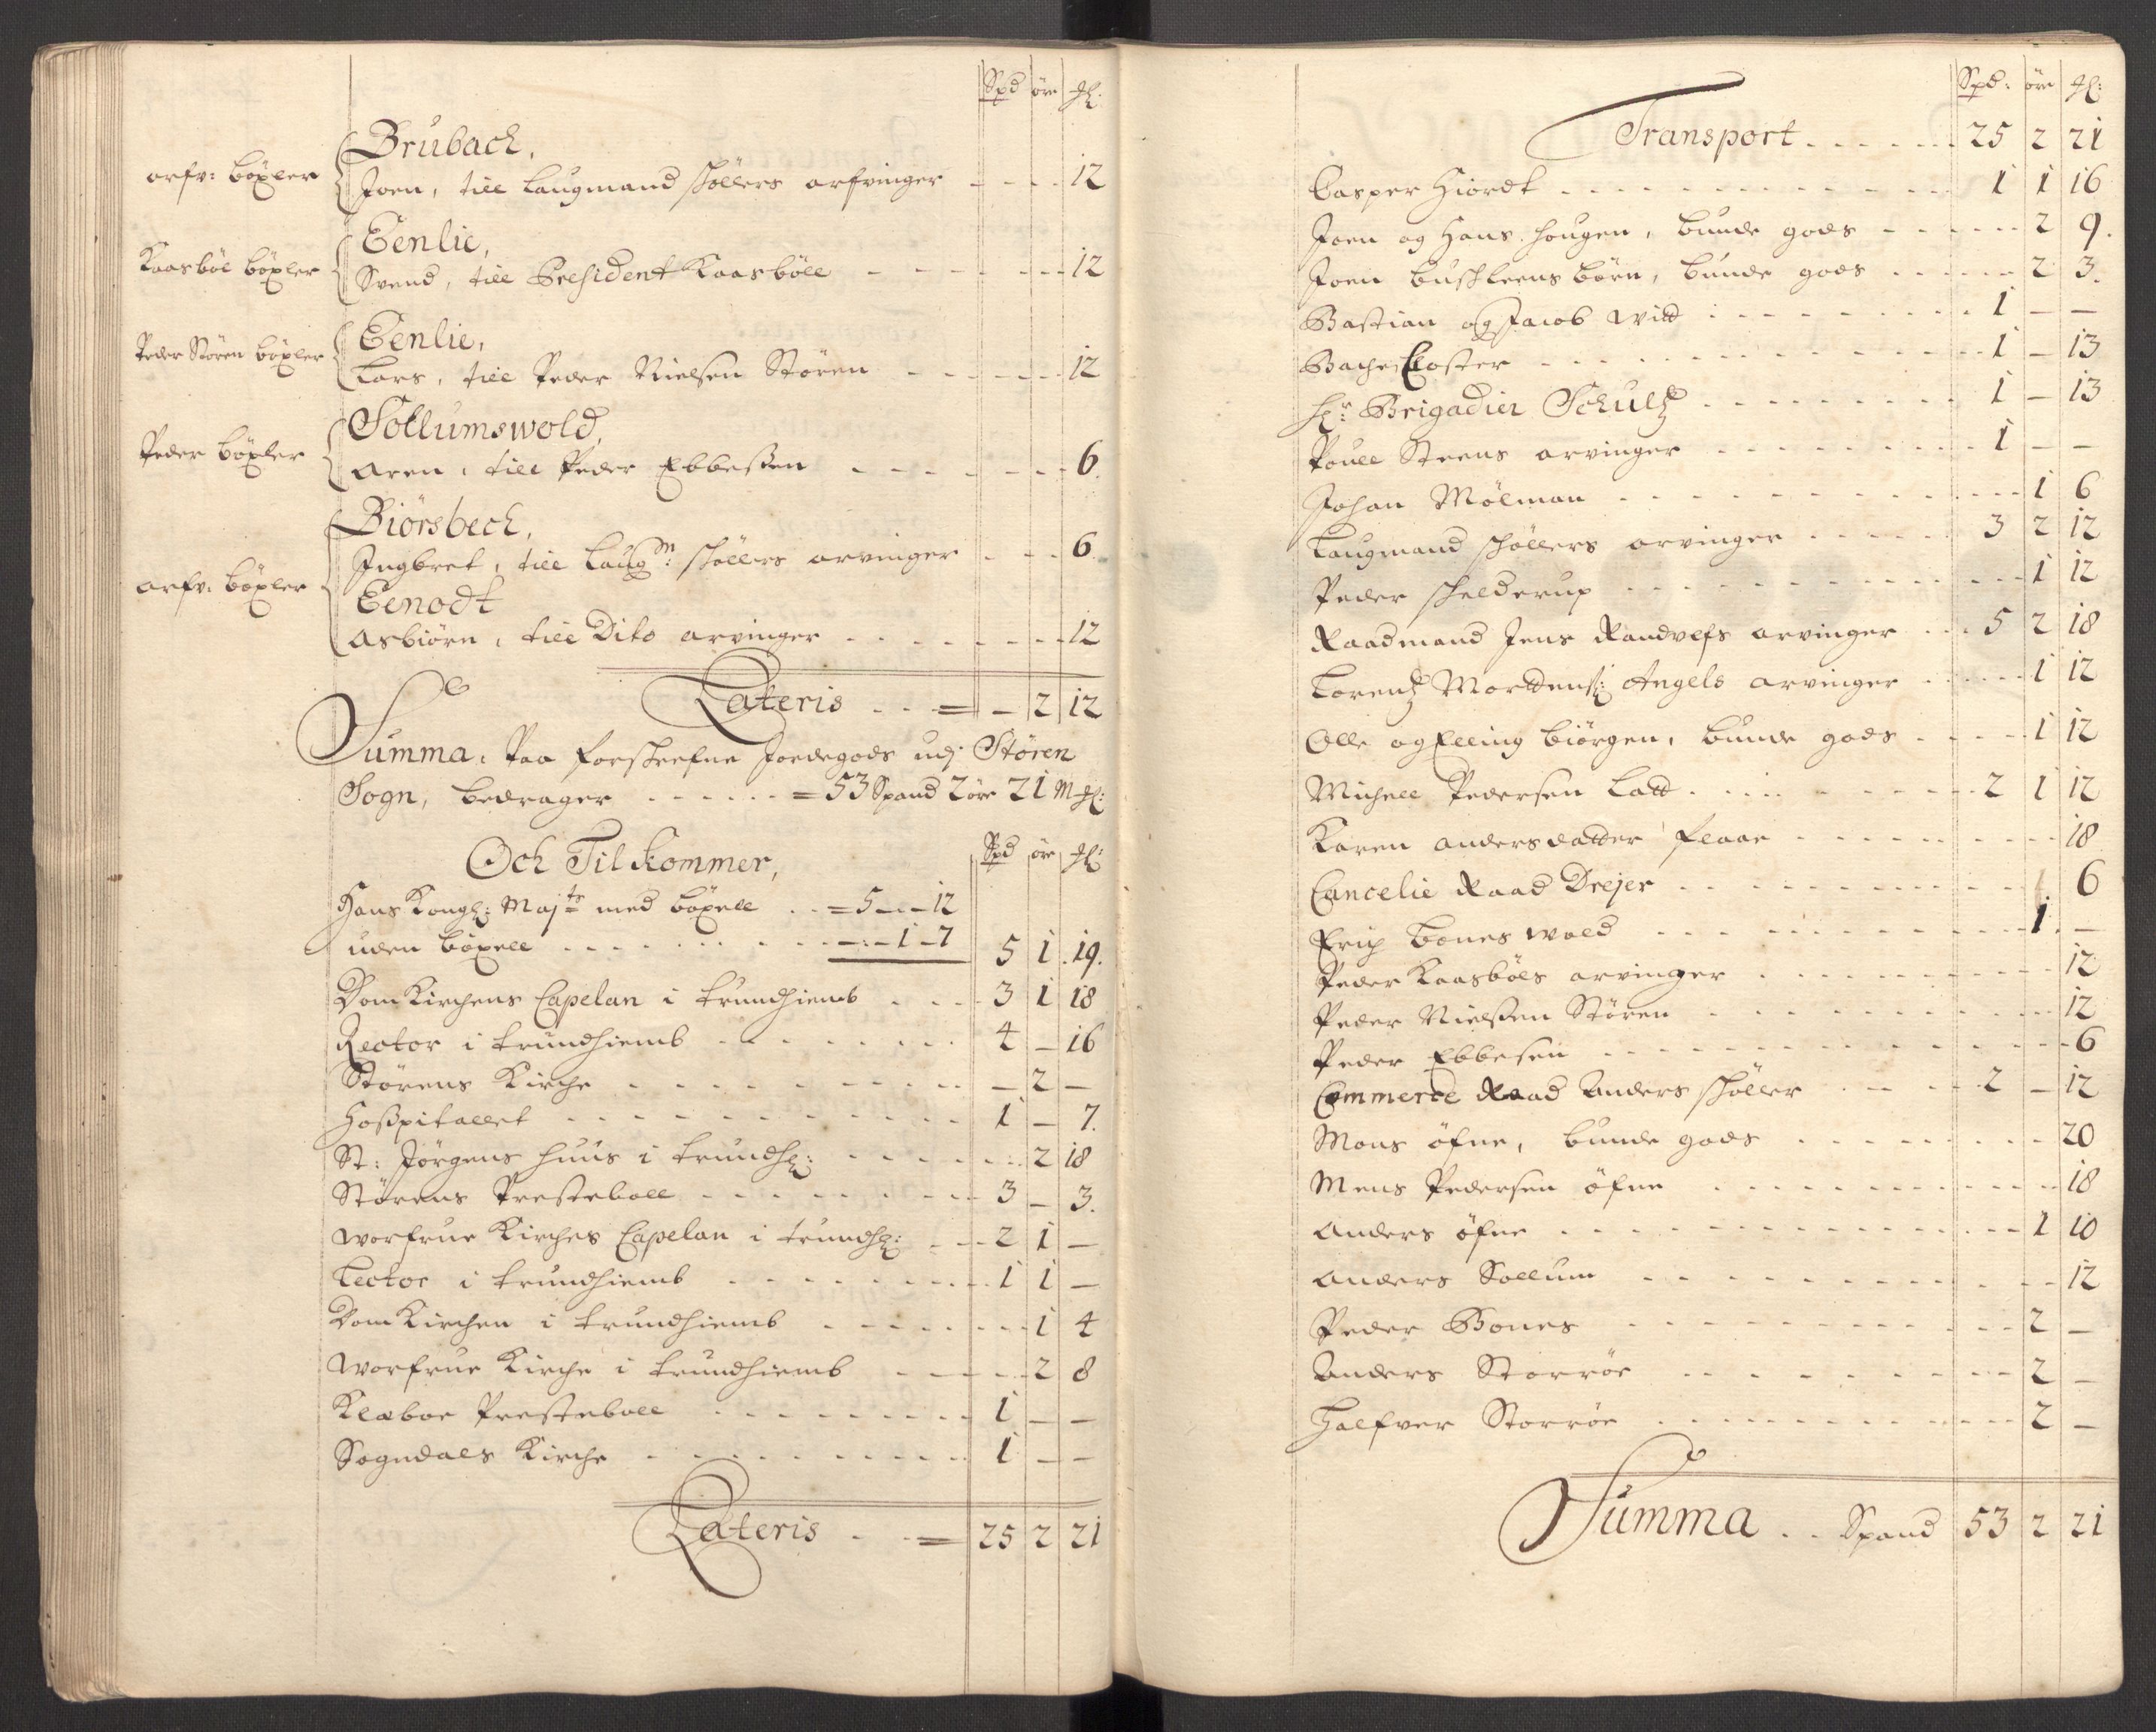 Spd öre #:
Brubach,
arfv: böxler Joen, till Laugmand Schøllers arfvinger - - - 12
Eenlie,
Kaasböl böxler Svend, till President Kaasbøll - - - 12
Eenlie,
Peder Støren böxler Lars, till Peder Nielsen Støren - - - 12
Sollumswold,
Peder böxler Aren, till Peder Ebbessen - - - 6.
Biörsbech,
Ingbret, till Laugm: Schøllers arvinger - - - 6.
arfv: böxler Eenodt
Asbiörn, till Dito arvinger - - - 12
Lateris - - = - 2 12
Summa, Paa forskrefne Jordegods udj Støren
Sogn, bedrager - - - = 53 Spand 2 öre 21 M#:
Och Tilkommer, Spd öre #:
Hans Kongl: Majts med böxell - - = 5 - - 12
uden böxell - - - 1 - 7 5 1 19.
Dom Kirchens Capelan i Trundhiemb - - - 3 1 18
Rector i Trundhiemb - - - 4 - 16
Störens Kirche - - - - 2 -
Hosspitallet - - - 1 - 7.
St: Jörgens huus i Trundh: - - - 2 18
Störens Presteboll - - - 3 - 3.
Worfrue Kirches Capelan i Trundh: - - 2 1 -
Lector i Trundhiemb - - - 1 1 -
Dom Kirchen i Trundhiemb - - - 1 4
Worfrue Kirche i Trundhiemb - - - 2 8
Klæboe Presteboll - - - 1 - -
Sogndals Kirche - - - 1 - -
Lateris - - = 25 2 21
Spd: öre #:
Transport - - - 25 2 21
Casper Hiordt - - - 1 1 16
Joen og Hans Hougen, bunde gods - - - 2 9.
Joen Buschleens börn, bunde gods - - - 2 3.
Bastian og Jacob Witt - - - 1 - -
Bache Closter - - - 1 - 13
Hr: Brigadier Schultz - - - 1 - 13
Poull Steens arvinger - - - 1 - -
Johan Mølman - - - 1 6
Laugmand Schøllers arvinger - - - 3 2 12
Peder Schelderup - - - 1 12
Raadmand Jens Randvlfs arvinger - - - 5 2 18
Lorentz Mortens: Angels arvinger - - - 1 12
Olle og Elling Biörgen, bunde gods - - - 1 12
Michell Pedersen Latt - - - 2 1 12
Karen Andersdatter Flaae - - - 18
Cancelie Raad Drejer - - - 6
Erich Bones wold - - - 1 -
Peder Kaasböls arvinger - - - 12
Peder Nielssen Støren - - - 12
Peder Ebbesen - - - 6
Commerce Raad Anders Schøller - - - 2 - 12
Mons öfne, bunde gods - - - 20
Mens Pedersen öfne - - - 18
Anders öfne - - - 1 10
Anders Sollum - - - 12
Peder Bones - - - 2 -
Anders Storröe - - - 2 -
Halfver Storröe - - - 2 -
Summa - - Spand 53 2 21